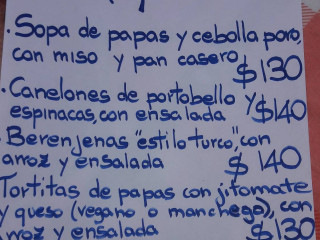 · Sopa de papas y cebolla poro,
con miso y pan casero $130
· Canelones de portobello y
espinacas, con ensalada $140
· Berenjenas "estilo turco", con
arroz y ensalada $140
Tortitas de papas con jitomate
y queso (vegano o manchego), con
arroz y ensalada $130